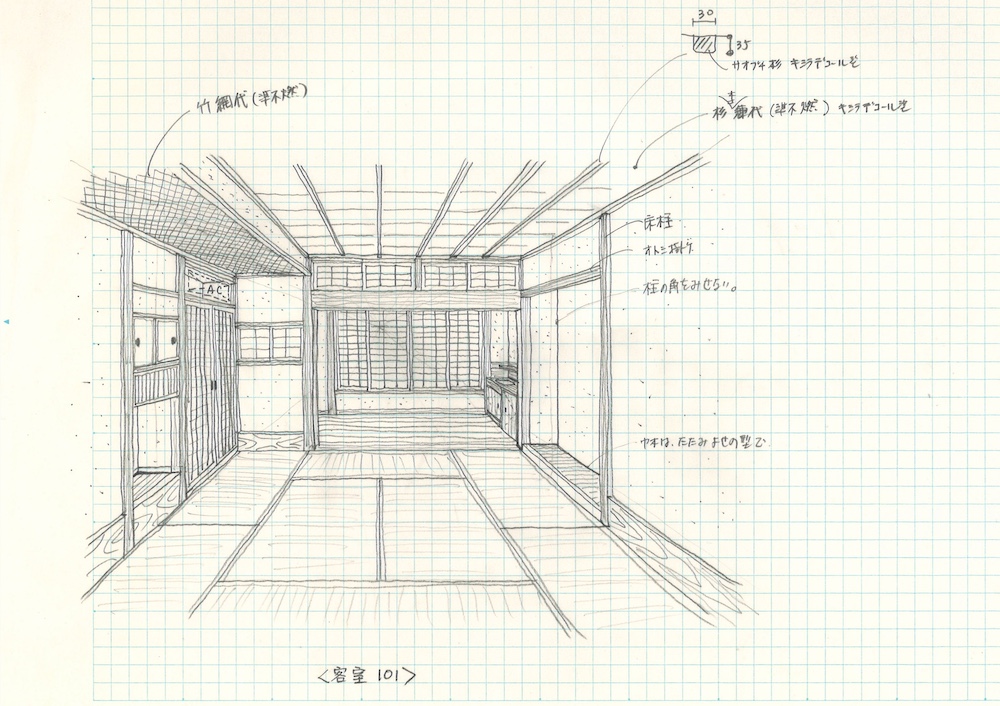 30
35
サオブチ杉 キシラデコール塗
竹網代(準不燃)
杉 網代 (準不燃) キシラデコール塗
床柱
オトシ掛ケ
柱の角をみせない。
AC
たたみよせの型で
<客室 101>